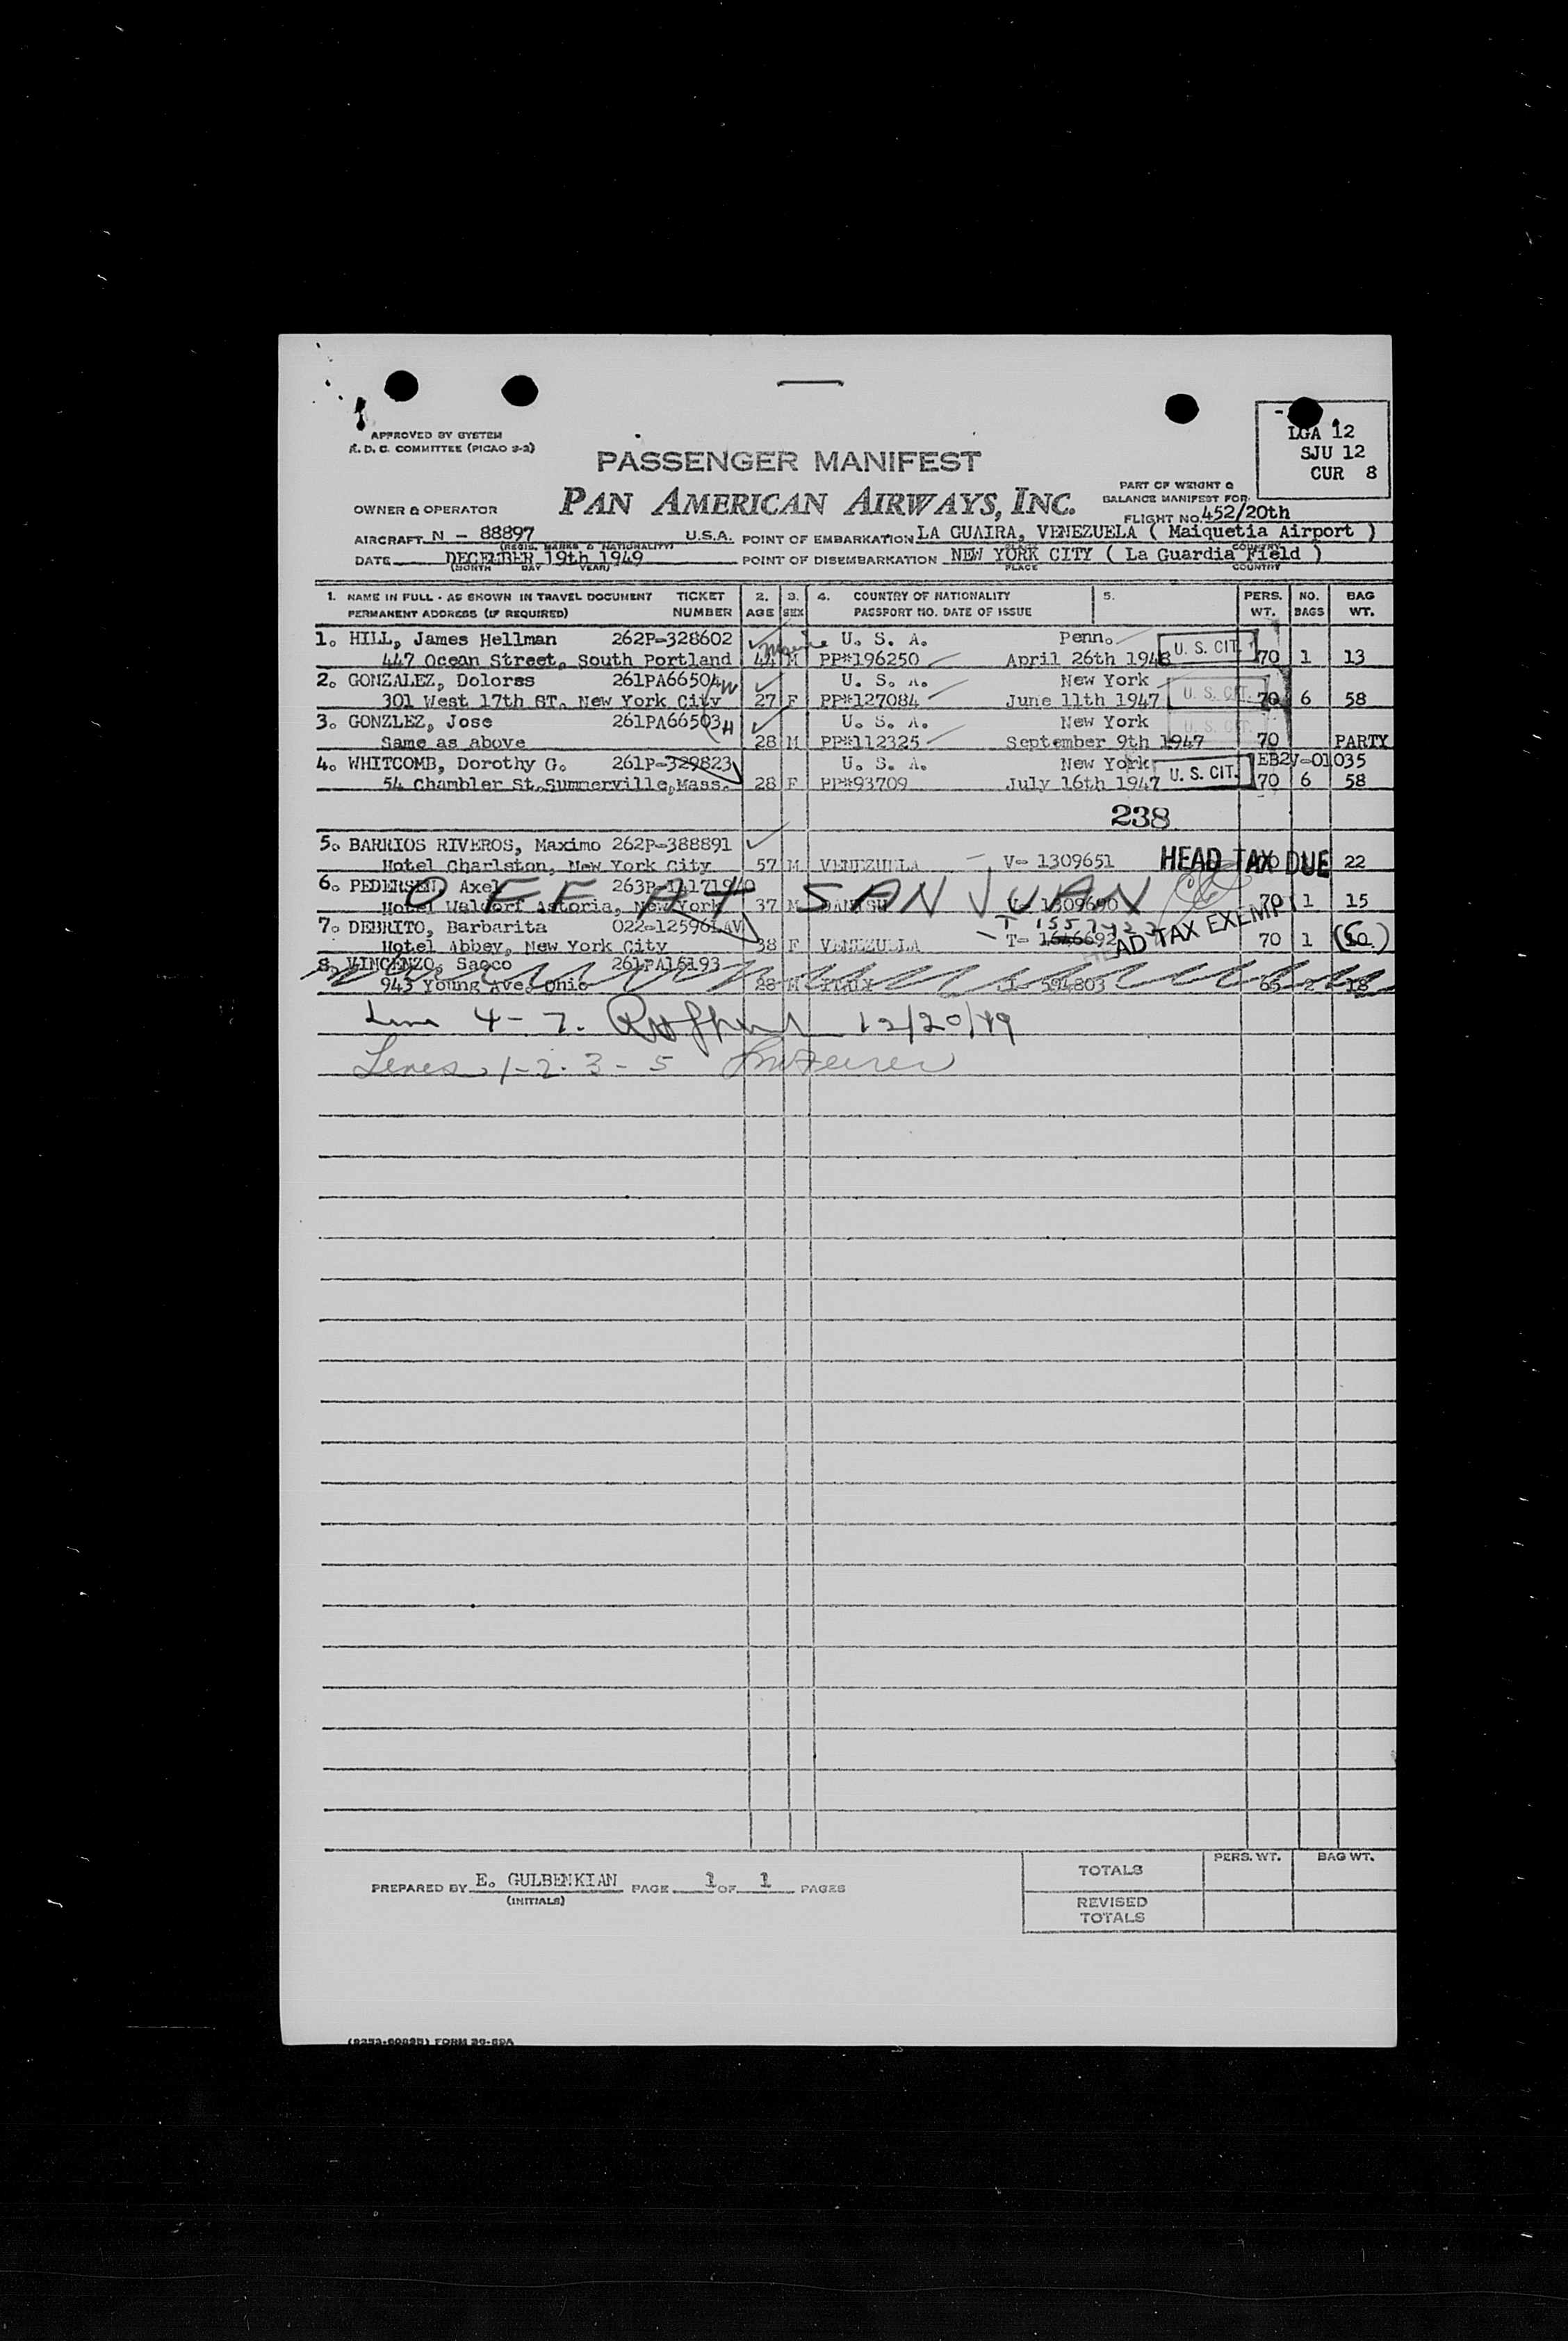 LGA 12
SJU 12
CUR 8
APPROVED BY SYSTEM
R. D. C. COMMITTEE (PICAO S-2)
PASSENGER MANIFEST
PART OF WEIGHT &
BALANCE MANIFEST FOR
OWNER & OPERATOR PAN AMERICAN AIRWAYS, INC.
FLIGHT NO. 452/20th
AIRCRAFT N - 88897 U.S.A. POINT OF EMBARKATION LA GUAIRA, VENEZUELA ( Maiquetia Airport )
(REGIS. MARKS & NATIONALITY) PLACE COUNTRY
DATE DECEMBER 19th 1949 POINT OF DISEMBARKATION NEW YORK CITY ( La Guardia Field )
(MONTH DAY YEAR) PLACE COUNTRY
1. NAME IN FULL - AS SHOWN IN TRAVEL DOCUMENT TICKET 2. 3. 4. COUNTRY OF NATIONALITY 5. PERS. NO. BAG
PERMANENT ADDRESS (IF REQUIRED) NUMBER AGE SEX PASSPORT NO. DATE OF ISSUE WT. BAGS WT.
1. HILL, James Hellman 262P-328602 U. S. A. Penn.
Maine
447 Ocean Street, South Portland 44 M PP#196250 April 26th 1948 U. S. CIT. 70 1 13
2. GONZALEZ, Dolorss 261PA66504 W U. S. A. New York
301 West 17th ST. New York City 27 F PP#127084 June 11th 1947 U. S. CIT. 70 6 58
3. GONZLEZ, Jose 261PA66503 H U. S. A. New York U. S. CIT.
Same as above 28 M PP#112325 September 9th 1947 70 PARTY
4. WHITCOMB, Dorothy G. 261P-329823 U. S. A. New York EB2V-01035
54 Chambler St. Summerville, Mass. 28 F PP#93709 July 16th 1947 U. S. CIT. 70 6 58
238
5. BARRIOS RIVEROS, Maximo 262P-388891
Hotel Charlston, New York City 57 M VENEZUELA V- 1309651 HEAD TAX DUE 22
6. PEDERSEN, Axel
OFF AT SAN JUAN
Hotel Waldorf Astoria, New York 37 M DANISH 1309690 70 1 15
7. DEBRITO, Barbarita 022-12596LAV
Hotel Abbey, New York City 38 F VENEZUELA T- 1646692 HEAD TAX EXEMPT 70 1
8. VINCENZO, Sacco 261PA16193
943 Young Ave, Ohio 28 M ITALY I- 594803 65 2 18
Line 4-7. 12/20/49
Lines 1-2-3-5
TOTALS PERS. WT. BAG WT.
PREPARED BY E. GULBENKIAN PAGE 1 OF 1 PAGES
(INITIALS)
REVISED
TOTALS